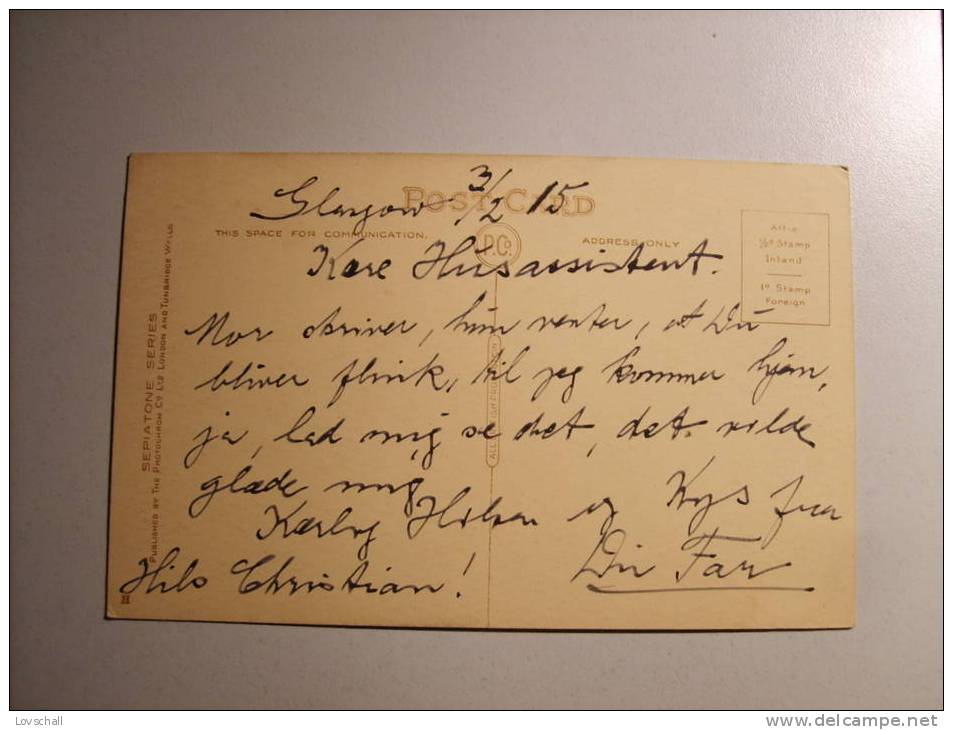 POST CARD
Glasgow 3/2 15
THIS SPACE FOR COMMUNICATION.
P.Co.
ADDRESS ONLY
Affix
½d Stamp
Inland
1d Stamp
Foreign
Kære Husassistent.
Mor skriver, hun venter, at Du
bliver flink, til jeg kommer hjem,
ja, lad mig se det, det vilde
glæde mig
Kærlig Hilsen og Kys fra
Din Far
Hils Christian!
SEPIATONE SERIES
PUBLISHED BY THE PHOTOCHROM CO LTD LONDON AND TUNBRIDGE WELLS
Lovschall
www.delcampe.net